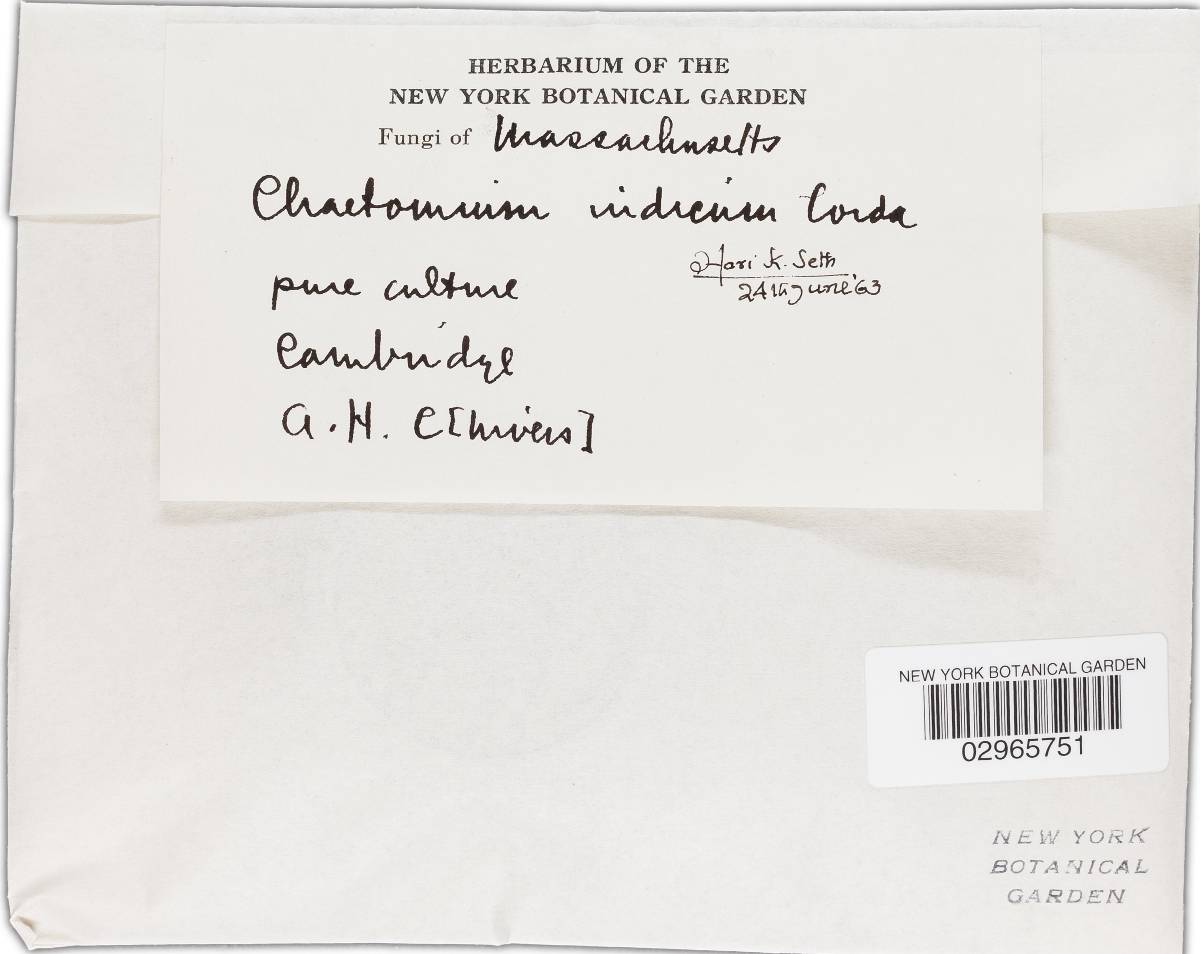 HERBARIUM OF THE
NEW YORK BOTANICAL GARDEN
Fungi of Massachusetts
Chaetomium indicum Corda
Hari K. Seth
24th June '63
pure culture
Cambridge
A. H. C[hivers]
NEW YORK BOTANICAL GARDEN
02965751
NEW YORK
BOTANICAL
GARDEN